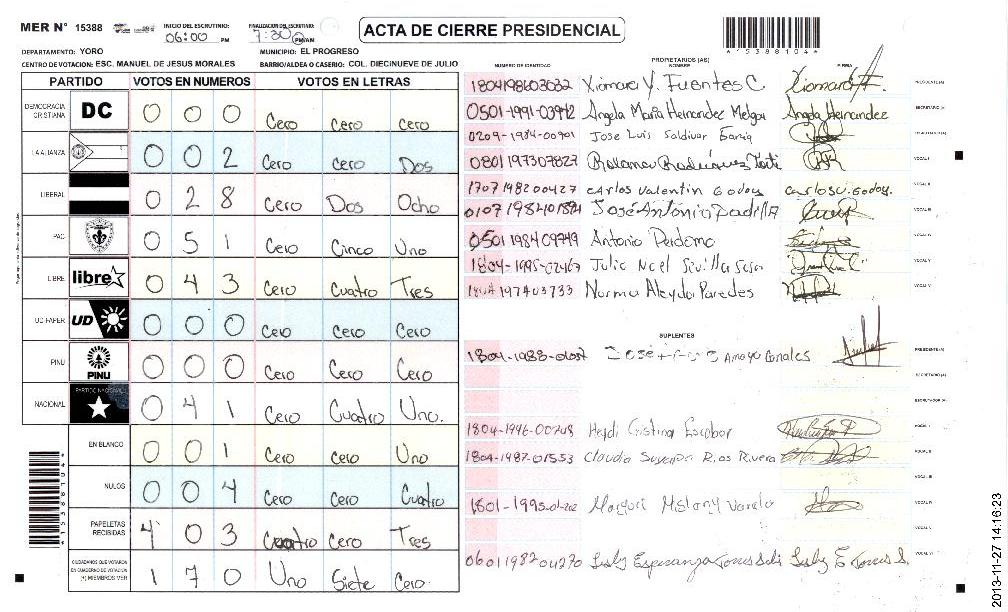 MER N° 15388
INICIO DEL ESCRUTINIO:
06:00 PM
FINALIZACION DEL ESCRUTINIO:
7:30 PM/AM
ACTA DE CIERRE PRESIDENCIAL
15388104
DEPARTAMENTO: YORO
MUNICIPIO: EL PROGRESO
CENTRO DE VOTACION: ESC. MANUEL DE JESUS MORALES
BARRIO/ALDEA O CASERIO: COL. DIECINUEVE DE JULIO
PARTIDO VOTOS EN NUMEROS VOTOS EN LETRAS
DEMOCRACIA CRISTIANA DC 0 0 0 Cero Cero Cero
LA ALIANZA 0 0 2 Cero Cero Dos
LIBERAL 0 2 8 Cero Dos Ocho
PAC 0 5 1 Cero Cinco Uno
LIBRE libre 0 4 3 Cero Cuatro Tres
UD-FAPER UD 0 0 0 Cero Cero Cero
PINU PINU 0 0 0 Cero Cero Cero
NACIONAL PARTIDO NACIONAL 0 4 1 Cero Cuatro Uno.
EN BLANCO 0 0 1 Cero Cero Uno
NULOS 0 0 4 Cero Cero Cuatro
PAPELETAS RECIBIDAS 4 0 3 Cuatro Cero Tres
CIUDADANOS QUE VOTARON EN CUADERNO DE VOTACION (+) MIEMBROS MER 1 7 0 Uno Siete Cero
PROPIETARIOS (AS)
NUMERO DE IDENTIDAD NOMBRE FIRMA
1804198603032 Xiomara Y. Fuentes C Xiomara F. PRESIDENTE (A)
0501-1991-03912 Angela Maria Hernandez Melgar Angela Hernandez SECRETARIO (A)
0209-1984-00901 Jose Luis Saldivar Garcia
0801197307827 Rodriguez VOCAL I
1707198200427 Carlos Valentin Godoy Carlos V. Godoy.
0107198401894 José Antonio Padilla
0501198409749 Antonio Perdomo
1804-1995-02467 Julio Noel Sevilla Sosa VOCAL V
1804197403733 Norma Aleyda Paredes
SUPLENTES
1804-1988- José Amaya Canales PRESIDENTE (A)
SECRETARIO (A)
ESCRUTADOR (A)
1804-1996-00748 Heydi Cristina Escobar VOCAL I
1804-1987-01553 Claudia Rios Rivera VOCAL II
VOCAL III
1801-1995-01202 Margori Mislany Varela VOCAL IV
VOCAL V
0601198204270 Lesly Esperanza Torres Solis Lesly E Torres S. VOCAL VI
15388104
2013-11-27 14:16:23